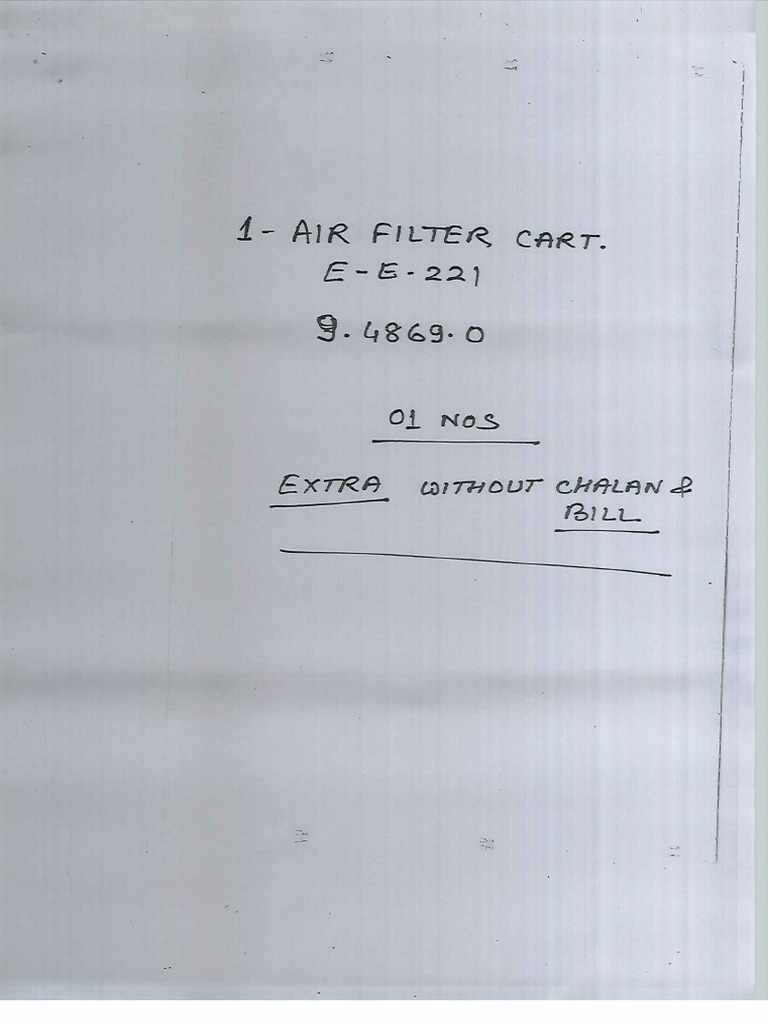 1- AIR FILTER CART.
E-E-221
9.4869.0
01 NOS
EXTRA WITHOUT CHALAN &
BILL